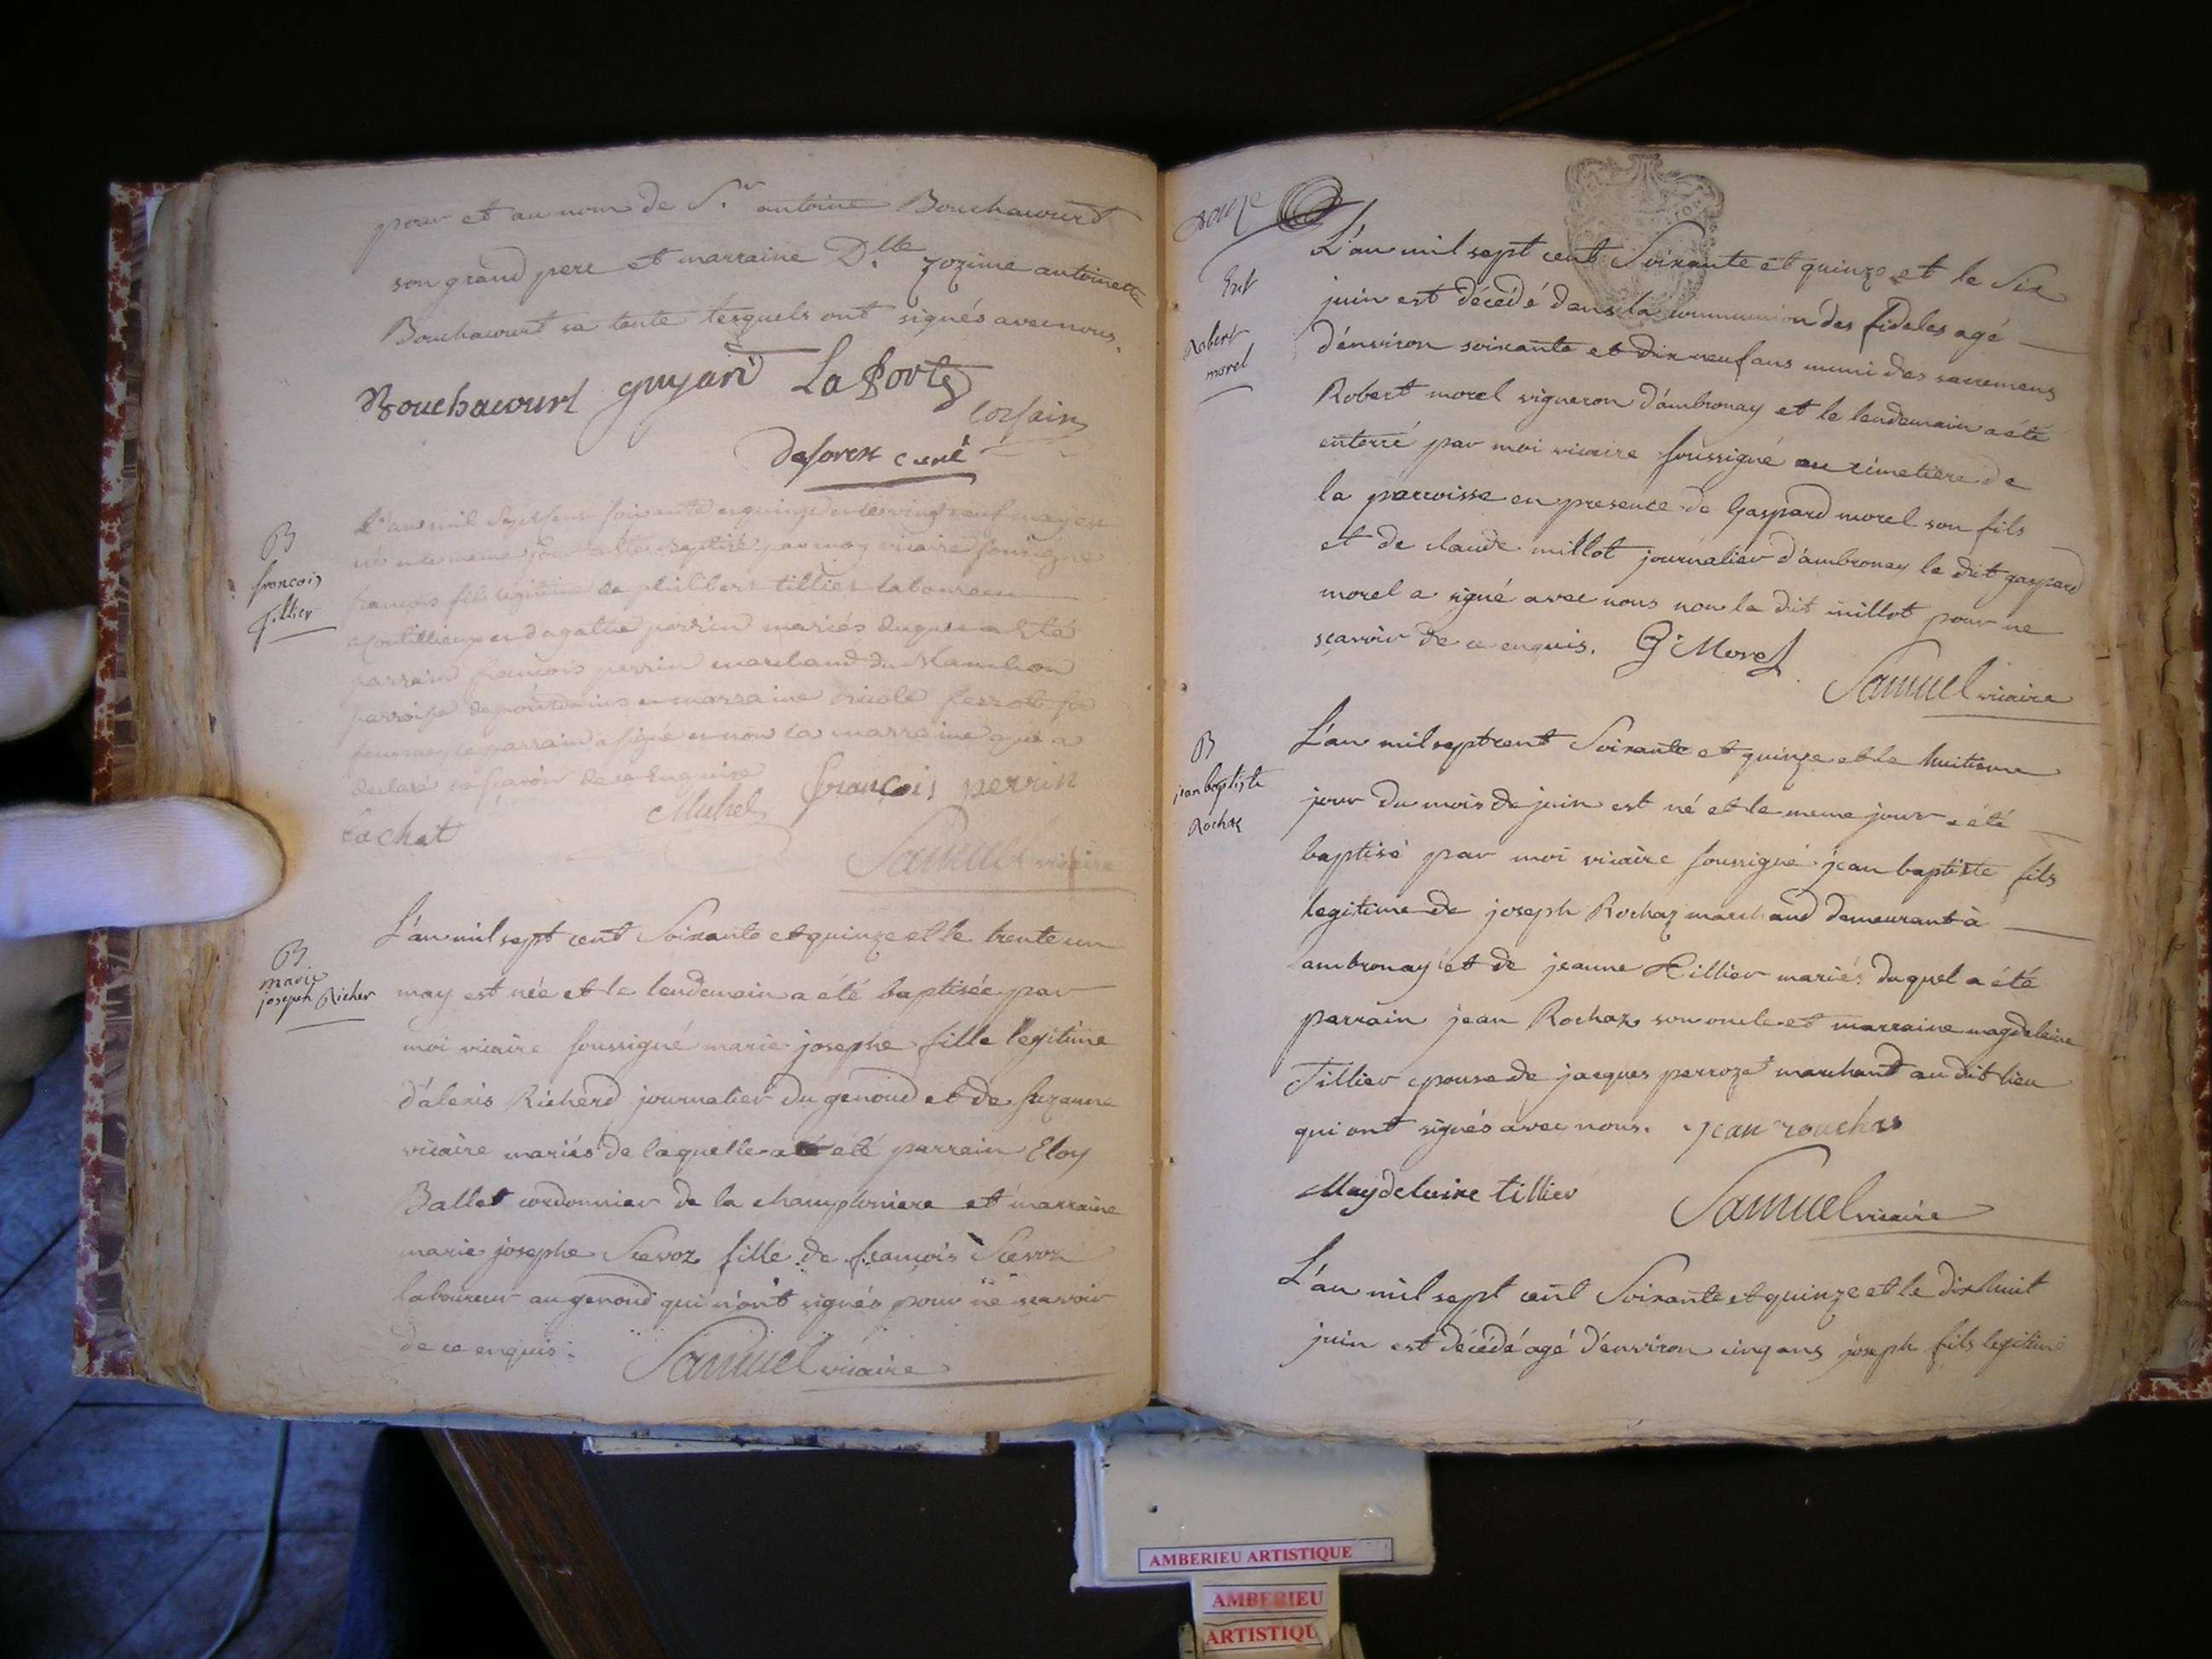 pour et au nom de S.r antoine Bouchacourt
son grand pere et marraine D.lle zozime antoinette
Bouchacourt sa tante lesquels ont signés avec nous.
Bouchacourt guyard La Porte
deforen curé
B
francois
tillier
L'an mil sept cent soixante et quinze et le vingt neuf may est
né et le meme jour a été baptisé par moy vicaire soussigné
francois fils legitime de philibert tillier laboureur
et d'agathe perrin mariés duquel a été
parrain francois perrin marchand du
parroisse de et marraine nicole
femme le parrain a signé et non la marraine qui a
declaré ne sçavoir de ce enquise
françois perrin
Michel
Lachat
Samuel vicaire
B
marie
joseph Richer
L'an mil sept cent Soixante et quinze et le trente un
may est née et le lendemain a été baptisée par
moi vicaire soussigné marie josephe fille legitime
d'alexis Richerd journalier du genoud et de suzanne
vicaire mariés de laquelle a été parrain Eloy
Ballet cordonnier de la champloniere et marraine
marie josephe Scevoz fille de francois Scevoz
laboureur au genoud qui n'ont signés pour ne scavoir
de ce enquis.
Samuel vicaire
douze
Ent
Robert
morel
L'an mil sept cent Soixante et quinze et le Six
juin est décedé dans la communion des fideles agé
d'environ soixante et dix neuf ans muni des sacremens
Robert morel vigneron d'ambronay et le lendemain a été
enterré par moi vicaire soussigné au cimetiere de
la parroisse en presence de Gaspard morel son fils
et de claude millot journalier d'ambronay le dit gaspard
morel a signé avec nous non le dit millot pour ne
sçavoir de ce enquis. G. Morel
Samuel vicaire
B
jean baptiste
Rochaz
L'an mil sept cent Soixante et quinze et le huitieme
jour du mois de juin est né et le meme jour a été
baptisé par moi vicaire soussigné jean baptiste fils
legitime de joseph Rochaz marchand demeurant à
ambronay et de jeanne Tillier mariés duquel a été
parrain jean Rochaz son oncle et marraine magdeleine
Tillier epouse de jacques perrozet marchant au dit lieu
qui ont signés avec nous. jean rouchas
Magdeleine tillier
Samuel vicaire
L'an mil sept cent Soixante et quinze et le dix huit
juin est décédé agé d'environ cinq ans joseph fils legitime
AMBERIEU ARTISTIQUE
AMBERIEU
ARTISTIQU